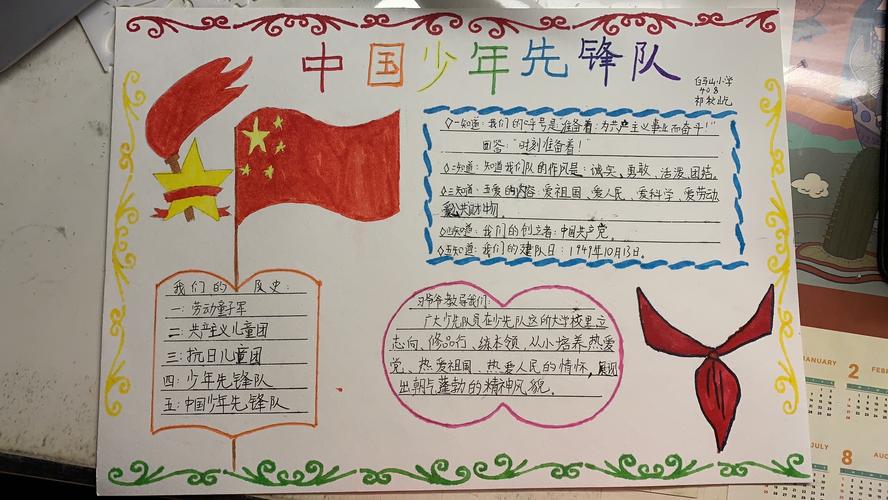 中国少年先锋队
白马山小学
408
◇一知道：我们的呼号是"准备着：为共产主义事业而奋斗！"
回答："时刻准备着！"
◇二知道：知道我们队的作风是：诚实、勇敢、活泼、团结。
◇三知道：五爱的内容：爱祖国、爱人民、爱科学、爱劳动
爱公共财物。
◇四知道：我们的创立者：中国共产党。
◇五知道：我们的建队日：1949年10月13日。
我们的队史：
一：劳动童子军
二：共产主义儿童团
三：抗日儿童团
四：少年先锋队
五：中国少年先锋队
习爷爷教导我们：
广大少先队员在少先队这所大学校里立
志向、修品行、练本领，从小培养热爱
党、热爱祖国、热爱人民的情怀，展现
出朝气蓬勃的精神风貌。
JANUARY
2 FEB
JULY
8 AUG